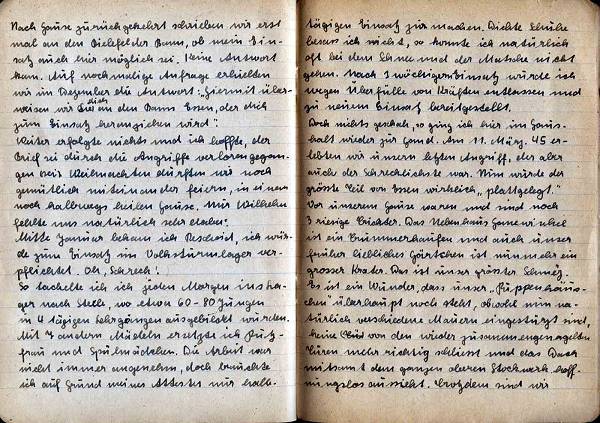 Nach Hause zurückgekehrt schrieben wir erst
mal an den Bielefelder Bann, ob mein Ein-
satz auch hier möglich sei. Keine Antwort
kam. Auf nochmalige Anfrage erhielten
wir im Dezember die Antwort: „Hiermit über-
weisen wir dich an den Bann Essen, der dich
zum Einsatz heranziehen wird."
Weiter erfolgte nichts und ich hoffte, der
Brief sei durch die Angriffe verlorengegan-
gen. Weihnachten durften wir noch
gemütlich miteinander feiern, in einem
noch halbwegs heilen Hause. Nur Wilhelm
fehlte uns natürlich sehr dabei.
Mitte Januar bekam ich Bescheid, ich wür-
de zum Einsatz im Volkssturmlager ver-
pflichtet. Oh, Schreck!
So tackelte ich jeden Morgen ins La-
ger nach Stelle, wo etwa 60-80 Jungen
in 4 tägigen Lehrgängen ausgebildet wurden.
Mit 7 andern Mädeln ersetzte ich Putz-
frau und Spülmädchen. Die Arbeit war
nicht immer angenehm, doch brauchte
ich auf Grund meines Attestes nur halb-
tägigen Einsatz zu machen. Dichte Schuhe
besass ich nicht, so konnte ich natürlich
oft bei dem Schnee und der Matsche nicht
gehen. Nach 3 wöchigem Einsatz wurde ich
wegen Überfülle von Kräften entlassen und
zu neuem Einsatz bereitgestellt.
Doch nichts geschah, so ging ich hier im Haus-
halt wieder zur Hand. Am 11. März 45 er-
lebten wir unsern letzten Angriff, der aber
auch der Schrecklichste war. Nun wurde der
grösste Teil von Essen wirklich „plattgelegt."
Vor unserem Hause waren und sind noch
3 riesige Trichter. Das Nebenhaus
ist ein Trümmerhaufen und auch unser
früher liebliches Gärtchen ist nunmehr ein
grosser Krater. Das ist unser grösster Schmerz.
Es ist ein Wunder, dass unser „Puppenhäus-
chen" überhaupt noch steht, obwohl nun na-
türlich verschiedene Mauern eingestürzt sind,
keine von den wieder zusammengenagelten
Türen mehr richtig schliesst und das Dach
mitsamt dem ganzen oberen Stockwerk hoff-
nungslos aussieht. Trotzdem sind wir